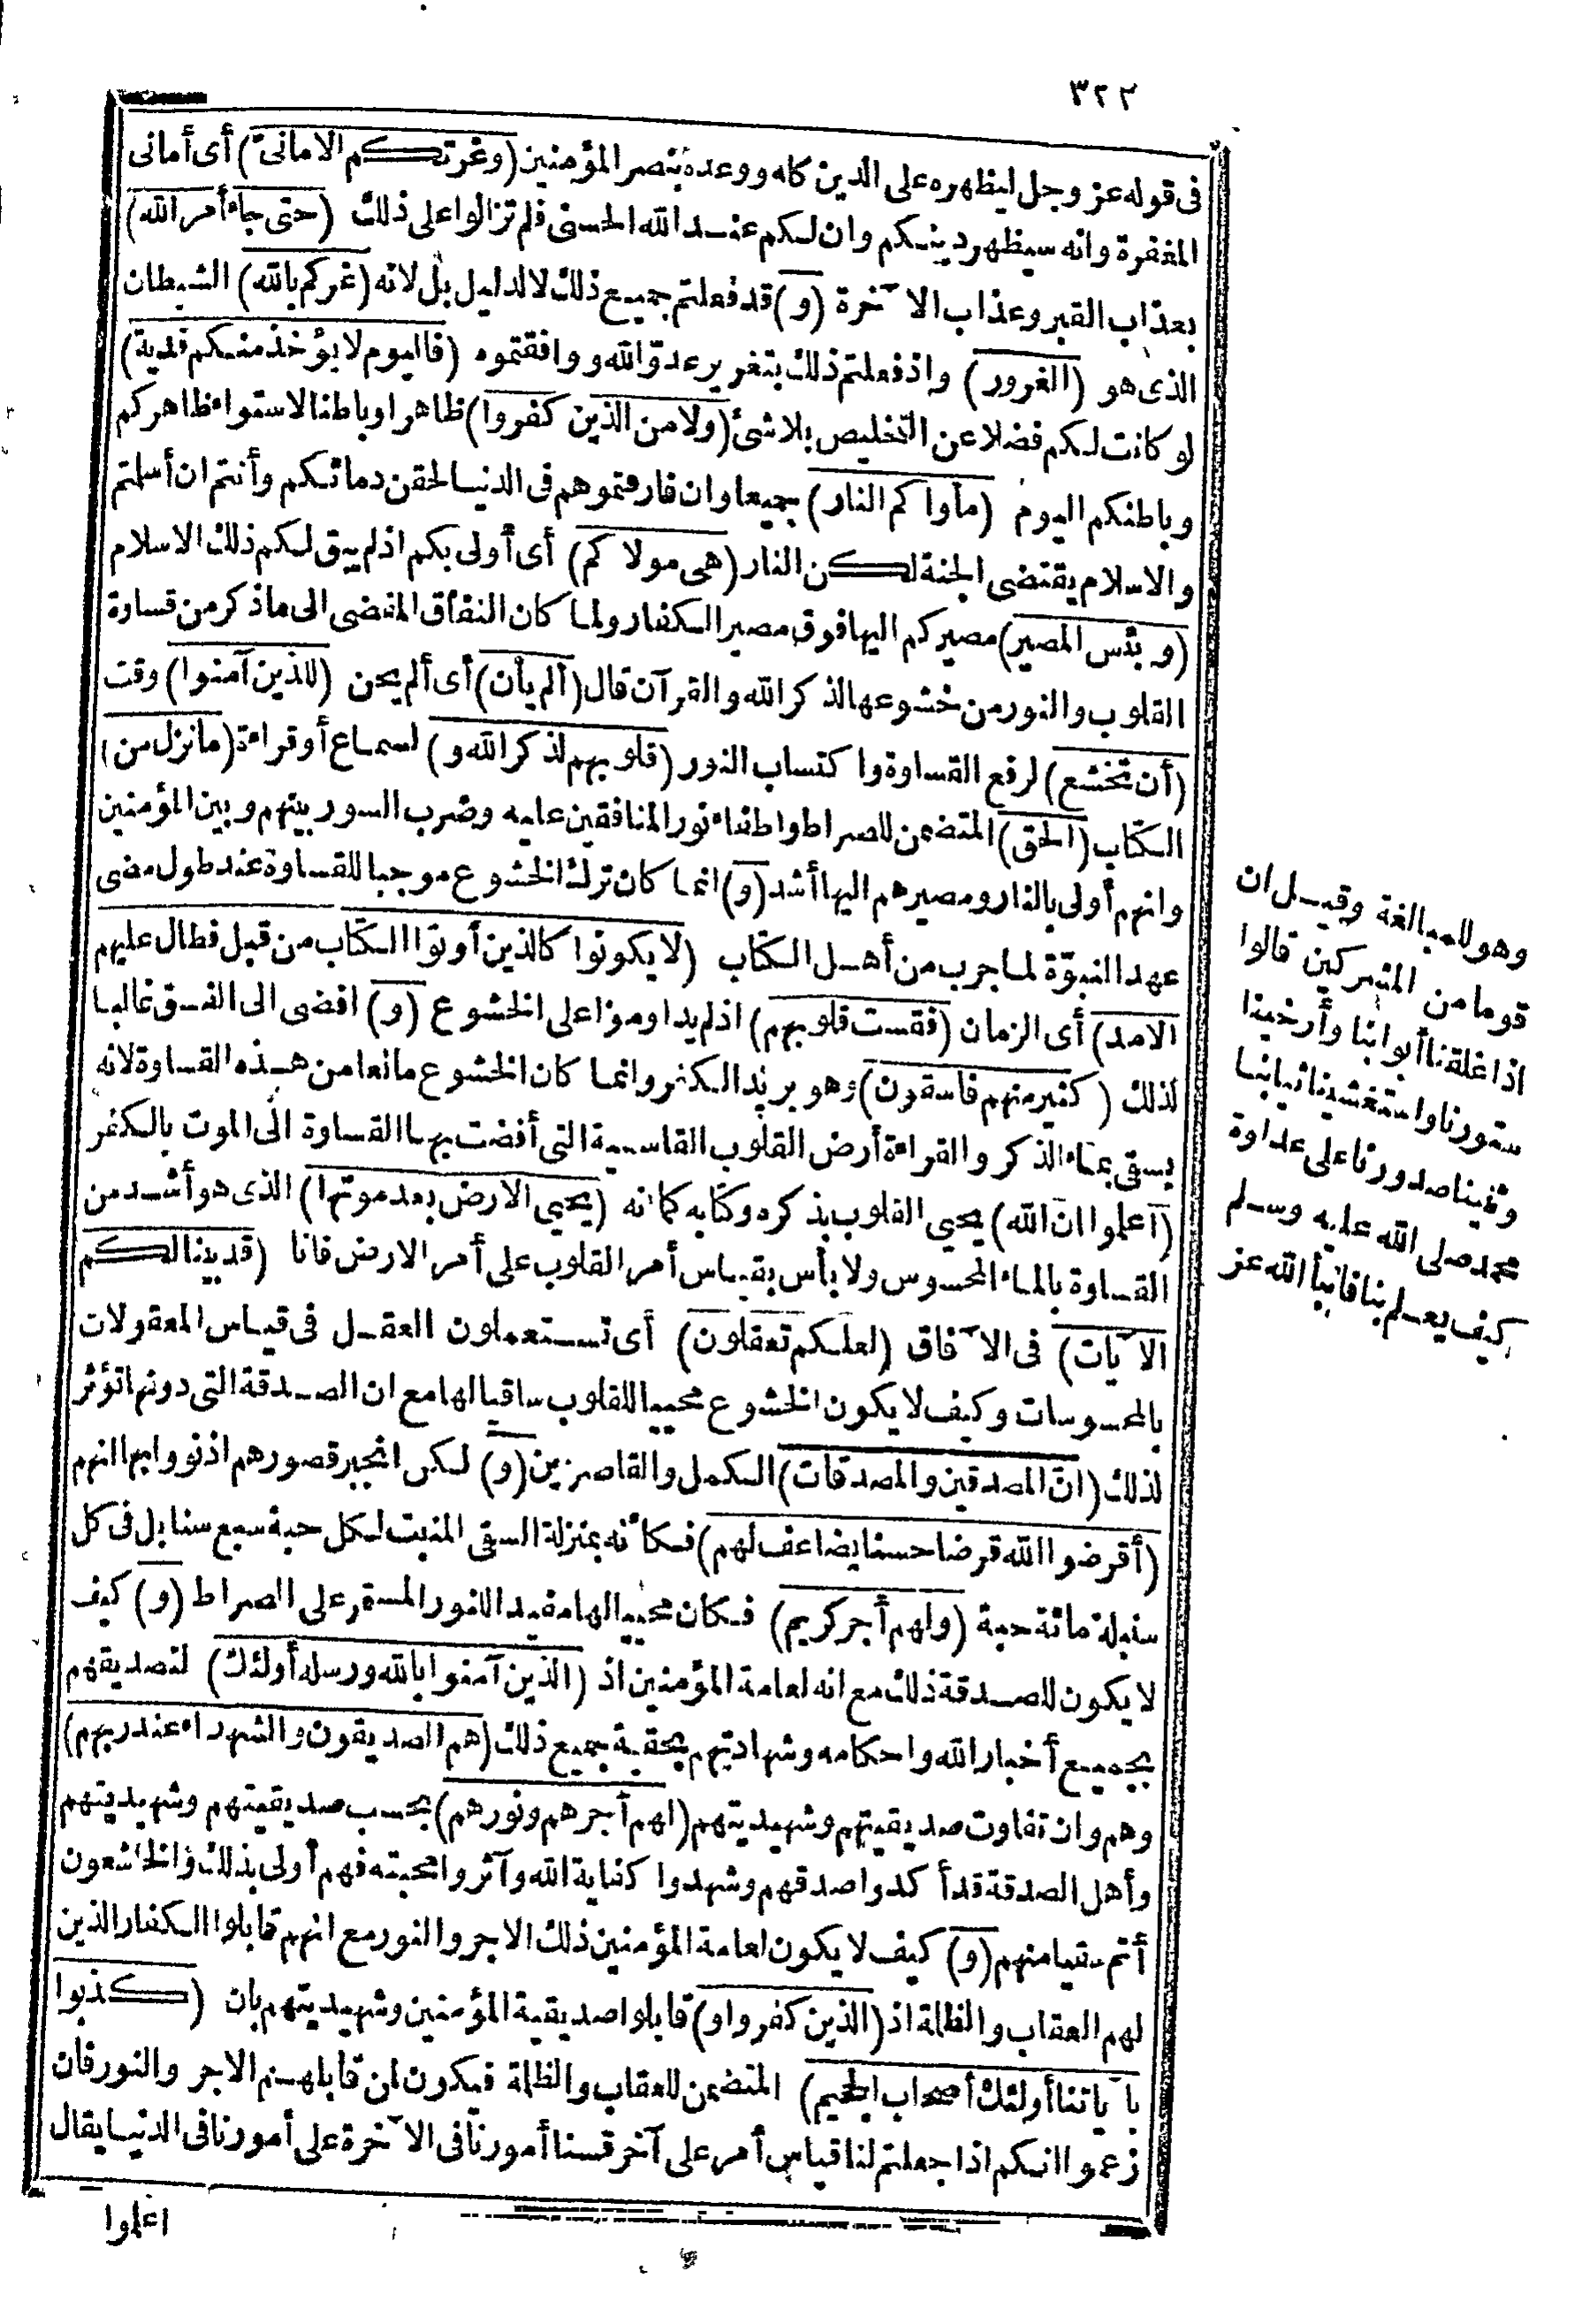 ٣٢٢
فى قوله عز وجل ليظهره على الدين كله ووعده بنصر المؤمنين (وغرتكم الامانىّ) أى أمانى
المغفرة وانه سيظهر دينكم وان لكم عند الله الحسنى فلم تزالوا على ذلك (حتى جاء أمر الله)
بعذاب القبر وعذاب الآخرة (و) قد فعلتم جميع ذلك لالدليل بل لانه (غركم بالله) الشيطان
الذى هو (الغرور) واذ فعلتم ذلك بتغرير عدوّ الله ووافقتموه (فاليوم لا يؤخذ منكم فدية)
لو كانت لكم فضلا عن التخليص بلا شئ (ولا من الذين كفروا) ظاهرا وباطنا لاستواء ظاهركم
وباطنكم اليوم (مأواكم النار) جميعا وان فارقتموهم فى الدنيا لحقن دمائكم وأنتم ان أسلتم
والاسلام يقتضى الجنة لكن النار (هى مولاكم) أى أولى بكم اذ لم يبق لكم ذلك الاسلام
(وبئس المصير) مصيركم اليها فوق مصير الكفار ولما كان النفاق المفضى الى ماذكر من قساوة
القلوب والنور من خشوعها لذكر الله والقرآن قال (ألم يأن) أى ألم يحن (للذين آمنوا) وقت
(أن تخشع) لرفع القساوة واكتساب النور (قلوبهم لذكر الله و) لسماع أو قراءة (ما نزل من)
الكتاب (الحق) المتضمن للصراط واطفاء نور المنافقين عليه وضرب السور بينهم وبين المؤمنين
وانهم أولى بالنار ومصيرهم اليها أشد (و) انما كان ترك الخشوع موجبا للقساوة عند طول مضى
عهد النبوّة لما جرب من أهل الكتاب (لا يكونوا كالذين أوتوا الكتاب من قبل فطال عليهم
الامد) أى الزمان (فقست قلوبهم) اذ لم يداوموا على الخشوع (و) افضى الى الفسق غالبا
لذلك (كثير منهم فاسقون) وهو بريد الكفر وانما كان الخشوع مانعا من هذه القساوة لانه
يسقى بماء الذكر والقراءة أرض القلوب القاسية التى أفضت بها القساوة الى الموت بالكفر
(اعلموا ان الله) يحيى القلوب بذكره وكتابه كما انه (يحيى الارض بعد موتها) الذى هو أشد من
القساوة بالماء المحسوس ولا بأس بقياس أمر القلوب على أمر الارض فانا (قد بينا لكم
الآيات) فى الآفاق (لعلكم تعقلون) أى تستعملون العقل فى قياس المعقولات
بالمحسوسات وكيف لا يكون الخشوع محييا للقلوب ساقيا لها مع ان الصدقة التى دونها تؤثر
لذلك (انّ المصدقين والمصدقات) الكمل والقاصرين (و) لكن انجبر قصورهم اذ نووا بها انهم
(أقرضوا الله قرضا حسنا يضاعف لهم) فكأنه بمنزلة السقى المنبت لكل حبة سبع سنابل فى كل
سنبلة مائة حبة (ولهم أجر كريم) فكان محييا لها مفيدا للنور المستمر على الصراط (و) كيف
لا يكون للصدقة ذلك مع انه لعامة المؤمنين اذ (الذين آمنوا بالله ورسله أولئك) لتصديقهم
بجميع أخبار الله واحكامه وشهادتهم بحقية جميع ذلك (هم الصديقون والشهداء عند ربهم)
وهم وان تفاوت صديقيتهم وشهيديتهم (لهم أجرهم ونورهم) بحسب صديقيتهم وشهيديتهم
وأهل الصدقة قد أكدوا صدقهم وشهدوا كفاية الله وآثروا محبته فهم أولى بذلك والخاشعون
أتم سقيا منهم (و) كيف لا يكون لعامة المؤمنين ذلك الاجر والنور مع انهم قابلوا الكفار الذين
لهم العقاب والظلمة اذ (الذين كفروا و) قابلوا صديقية المؤمنين وشهيديتهم بان (كذبوا
بآياتنا أولئك أصحاب الجحيم) المتضمن للعقاب والظلمة فيكون لمن قابلهم الاجر والنور فان
زعموا انكم اذا جعلتم لنا قياس أمر على آخر قسنا أمورنا فى الآخرة على أمورنا فى الدنيا يقال
اعلموا
وهو للمبالغة وقيل ان
قوما من المشركين قالوا
اذا غلقنا أبوابنا وأرخينا
ستورنا واستغشينا ثيابنا
وثنينا صدورنا على عداوة
محمد صلى الله عليه وسلم
كيف يعلم بنا فانبأ الله عز